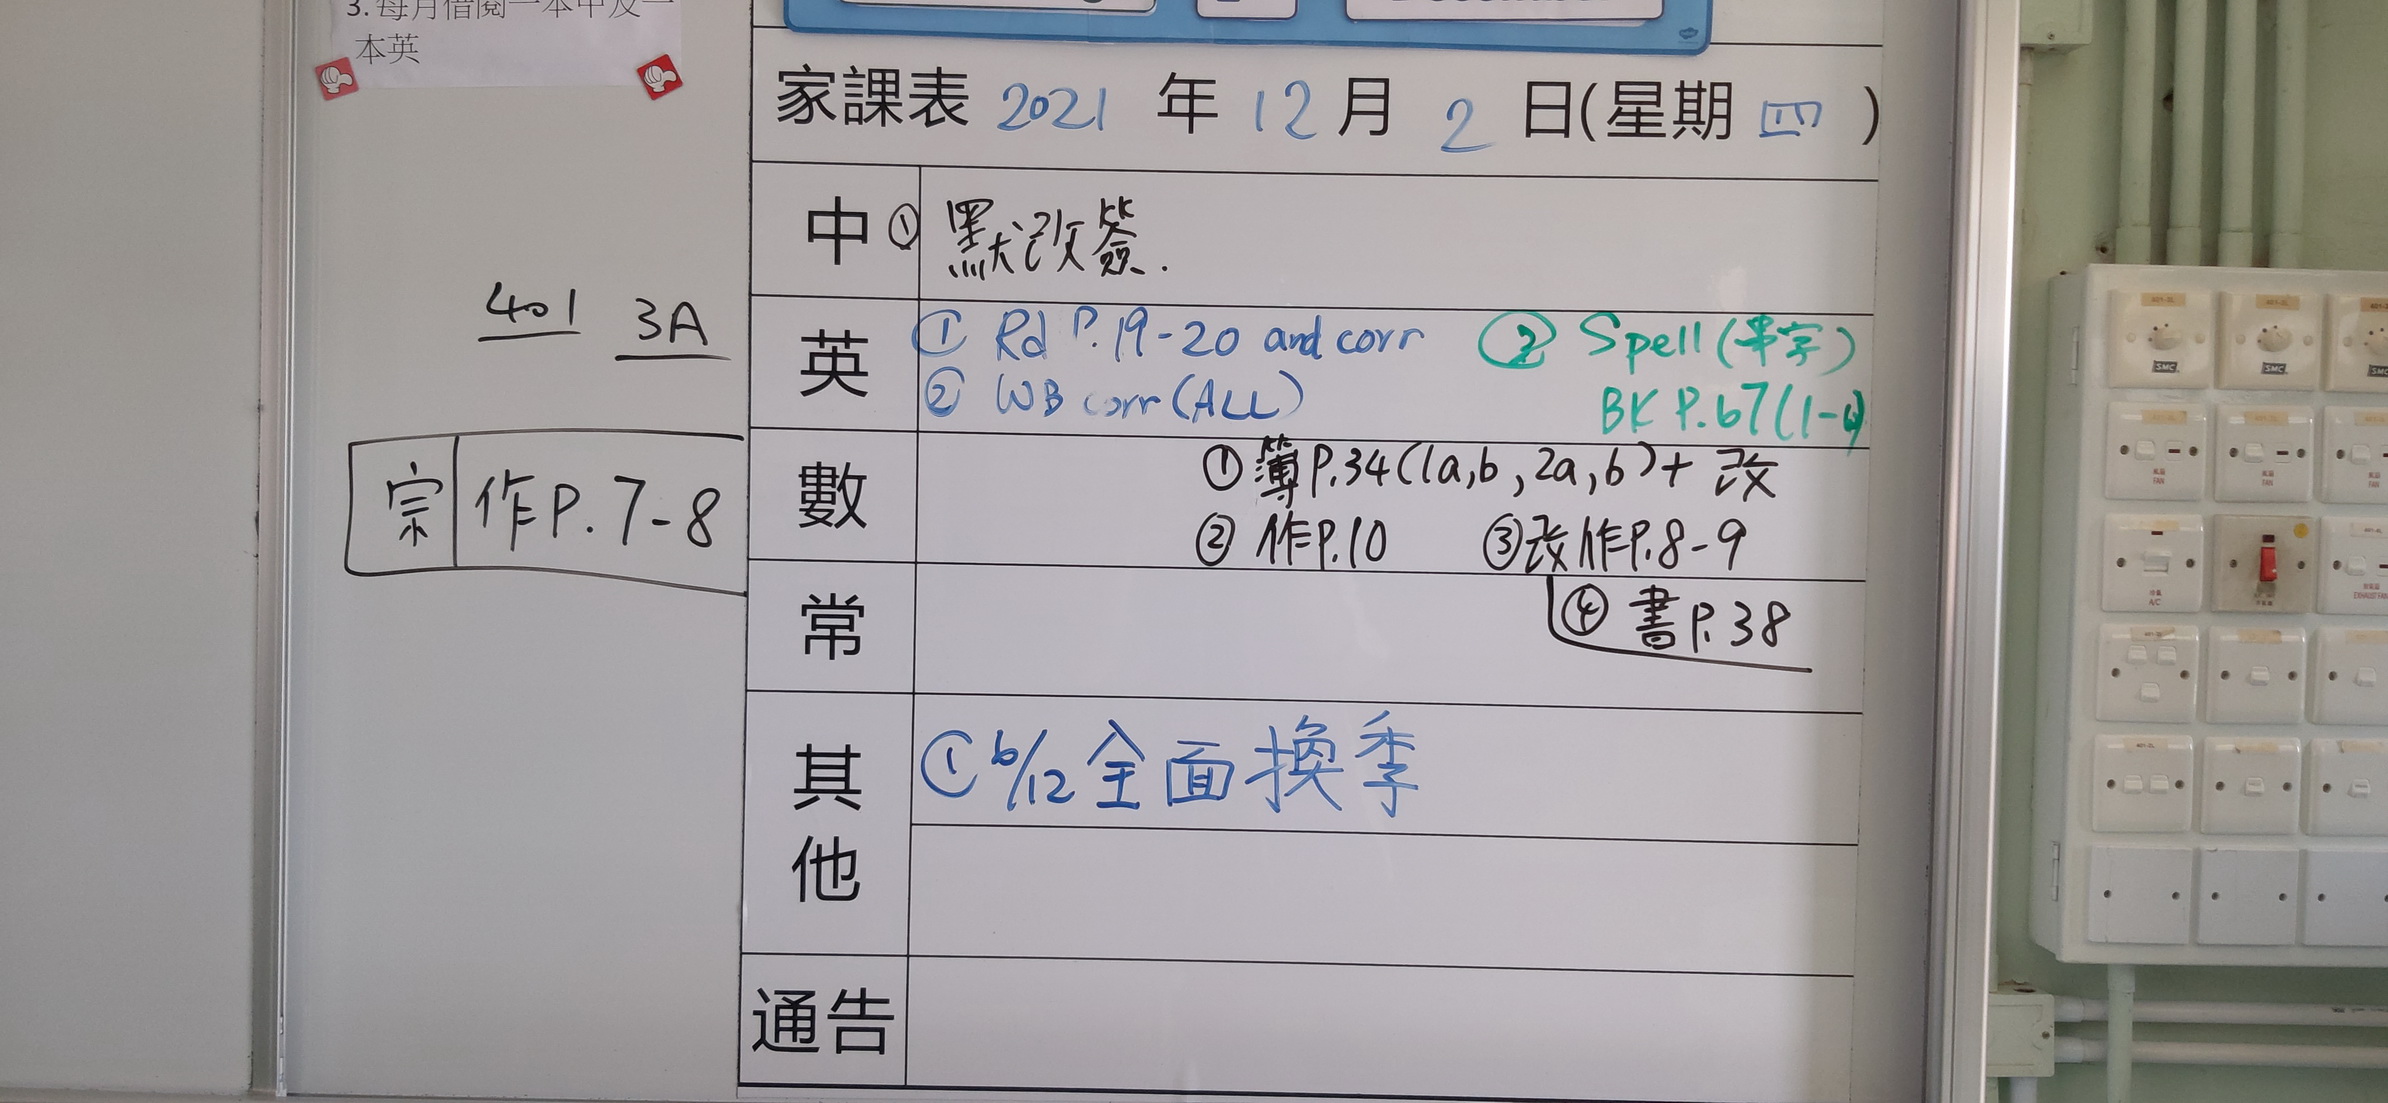 3. 每月借閱一本中及一
本英
家課表 2021 年 12 月 2 日(星期 四 )
中 ① 默改簽.
401 3A
英 ① Rd P.19-20 and corr ② Spell (串字)
② WB corr (ALL) BK P.67 (1-6)
宗 作P.7-8
數 ① 簿P.34(1a,b,2a,b)+改
② 作P.10 ③改作P.8-9
常 ④ 書P.38
其他 ① 6/12 全面換季
通告
SMC
SMC
SMC
FAN
FAN
FAN
A/C
EXHAUST FAN